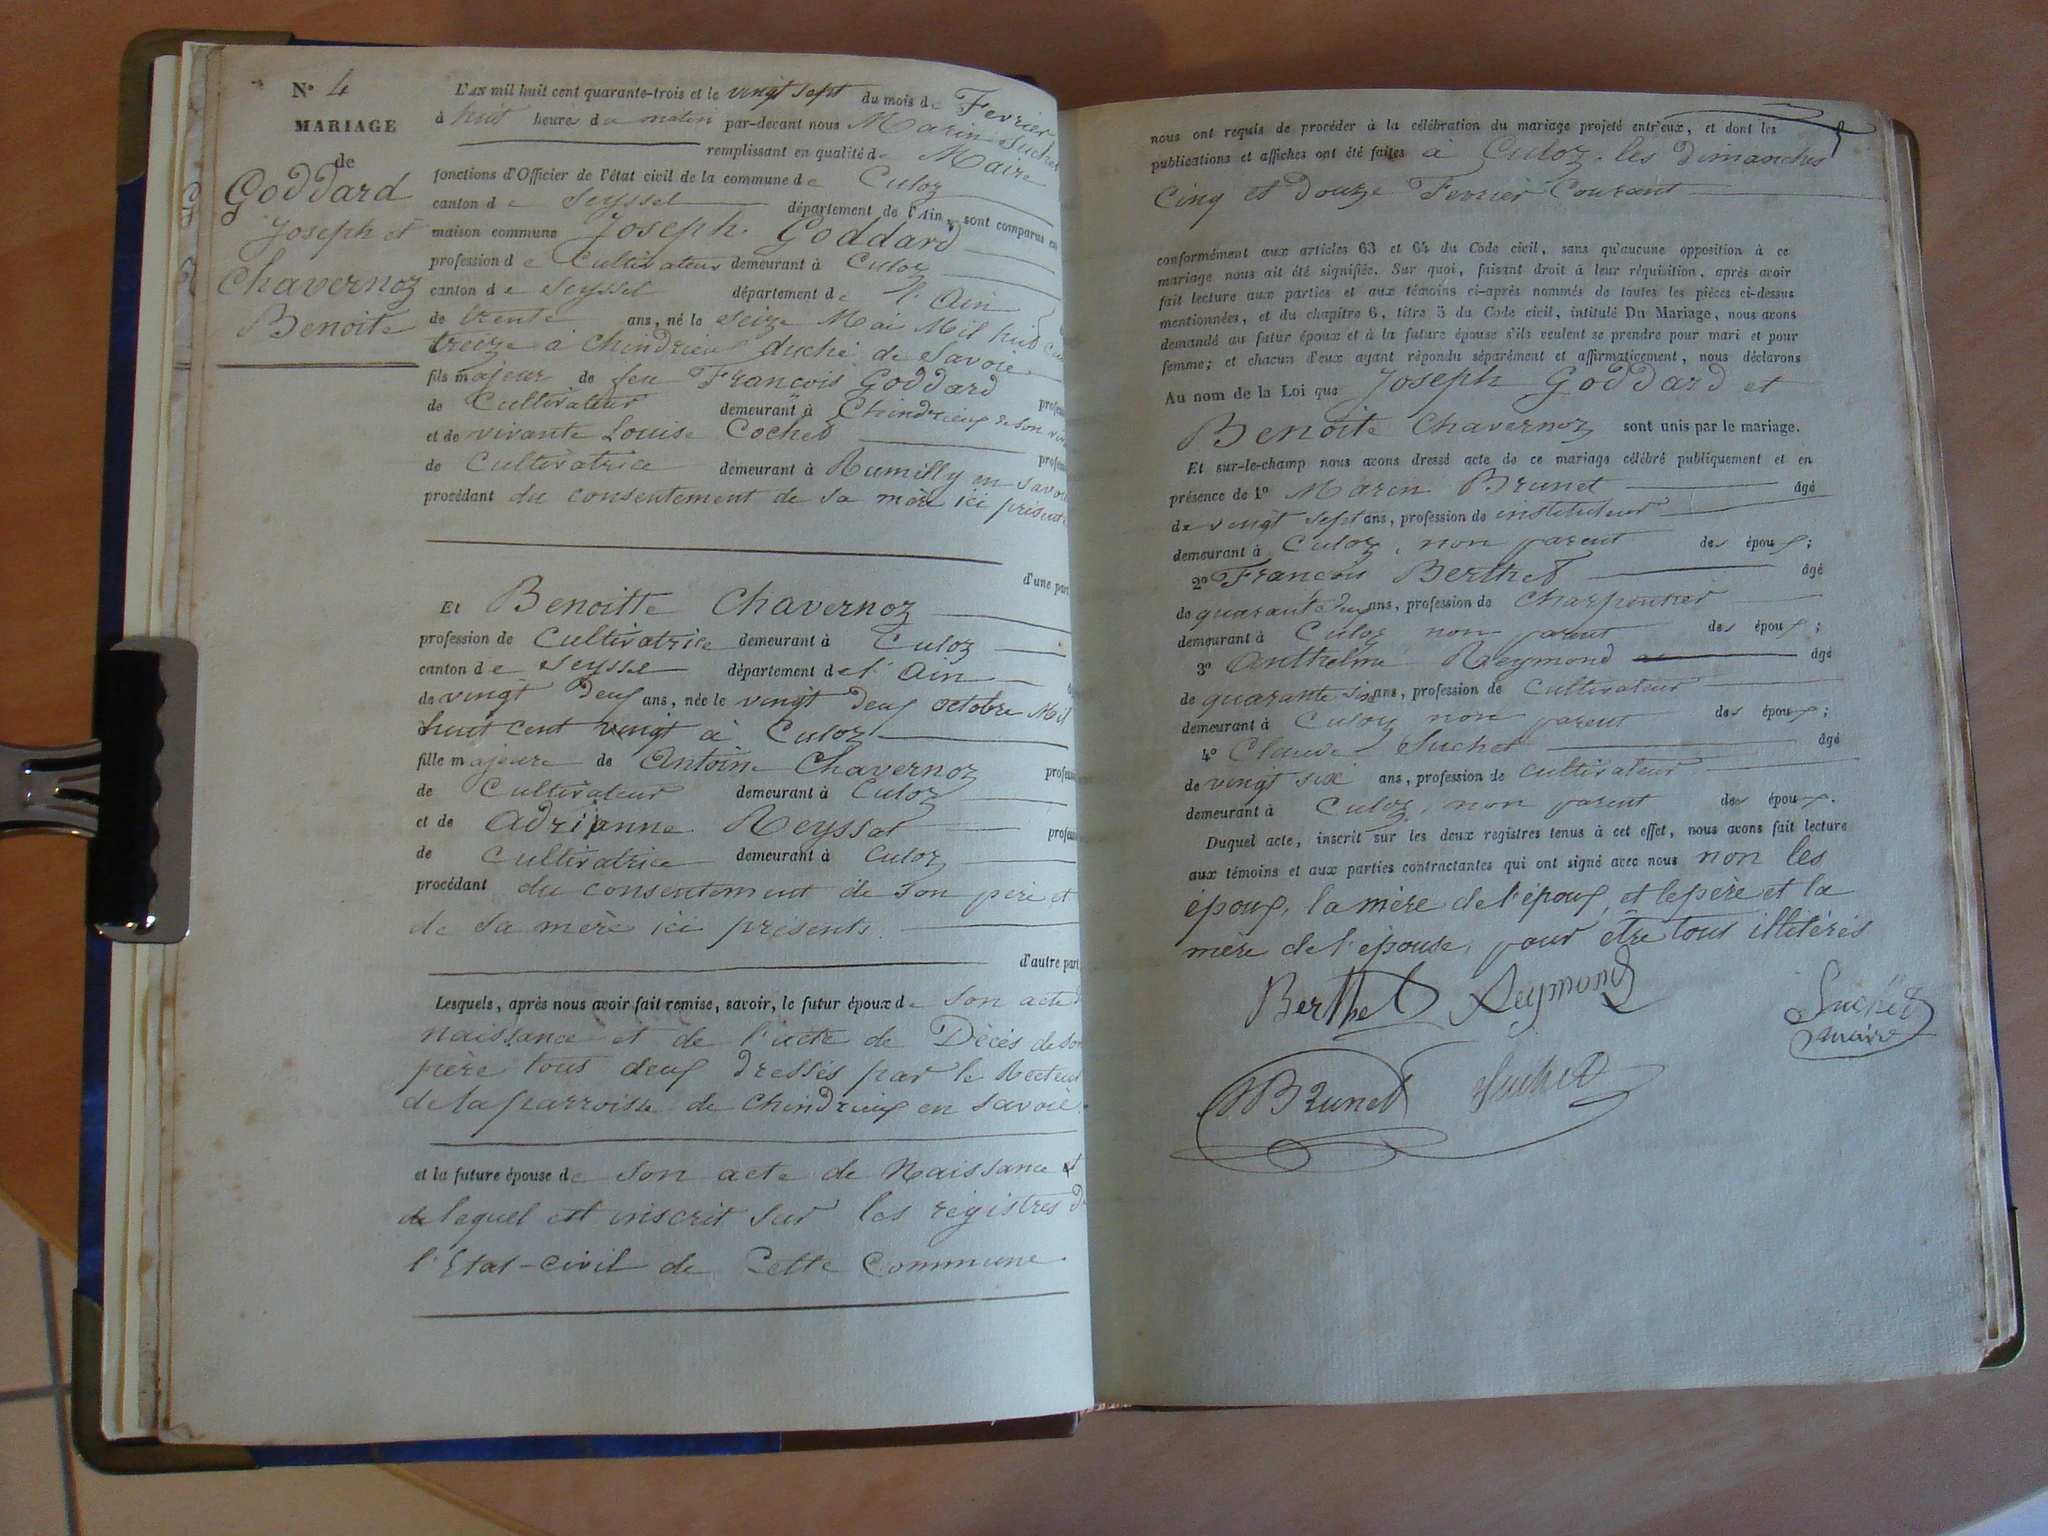 N° 4
MARIAGE
de
Goddard
Joseph et
Chavernoz
Benoite
L'AN mil huit cent quarante-trois et le vingt sept du mois de Fevrier
à huit heures du matin par-devant nous Marin Suchet
remplissant en qualité de Maire
fonctions d'Officier de l'état civil de la commune de Culoz
canton de Seyssel département de l'Ain, sont comparus en
maison commune Joseph Goddard
profession de Cultivateur demeurant à Culoz
canton de Seyssel département de l'Ain
de trente ans, né le Seize Mai Mil huit cent
treize à Chindrieux duché de Savoie
fils majeur de feu François Goddard profes
de Cultivateur demeurant à Chindrieux de son viv
et de vivante Louise Cochet profes
de Cultivatrice demeurant à Rumilly en Savoie
procédant du consentement de sa mère ici présente
d'une part
Et Benoitte Chavernoz
profession de Cultivatrice demeurant à Culoz
canton de Seyssel département de l'Ain
de vingt deux ans, née le vingt deux octobre Mil
huit cent vingt à Culoz
fille majeure de Antoine Chavernoz profess
de Cultivateur demeurant à Culoz
et de Adrianne Reyssat profess
de Cultivatrice demeurant à Culoz
procédant du consentement de son père et
de sa mère ici présents.
d'autre part
Lesquels, après nous avoir fait remise, savoir, le futur époux de son acte d
naissance et de l'acte de Décès de son
père tous deux dressés par le Recteur
de la parroisse de Chindrieux en Savoie.
et la future épouse de son acte de Naissance
lequel est inscrit sur les régistres d
l'Etat-civil de Cette Commune
nous ont requis de procéder à la célébration du mariage projeté entr'eux, et dont les
publications et affiches ont été faites à Culoz les Dimanches
Cinq et Douze Fevrier Courant
conformément aux articles 63 et 64 du Code civil, sans qu'aucune opposition à ce
mariage nous ait été signifiée. Sur quoi, faisant droit à leur réquisition, après avoir
fait lecture aux parties et aux témoins ci-après nommés de toutes les pièces ci-dessus
mentionnées, et du chapitre 6, titre 5 du Code civil, intitulé Du Mariage, nous avons
demandé au futur époux et à la future épouse s'ils veulent se prendre pour mari et pour
femme; et chacun d'eux ayant répondu séparément et affirmativement, nous déclarons
Au nom de la Loi que Joseph Goddard et
Benoite Chavernoz sont unis par le mariage.
Et sur-le-champ nous avons dressé acte de ce mariage célébré publiquement et en
présence de 1° Marin Brunet âgé
de vingt sept ans, profession de instituteur
demeurant à Culoz, non parent des époux;
2° François Berthet âgé
de quarante deux ans, profession de Charpentier
demeurant à Culoz non parent des époux;
3° Anthelme Reymond âgé
de quarante six ans, profession de Cultivateur
demeurant à Culoz non parent des époux;
4° Claude Suchet âgé
de vingt six ans, profession de cultivateur
demeurant à Culoz, non parent des époux.
Duquel acte, inscrit sur les deux registres tenus à cet effet, nous avons fait lecture
aux témoins et aux parties contractantes qui ont signé avec nous non les
époux, la mère de l'époux, et le père et la
mère de l'épouse, pour être tous illitérés
Berthet Reymond
Suchet
maire
Brunet Suchet